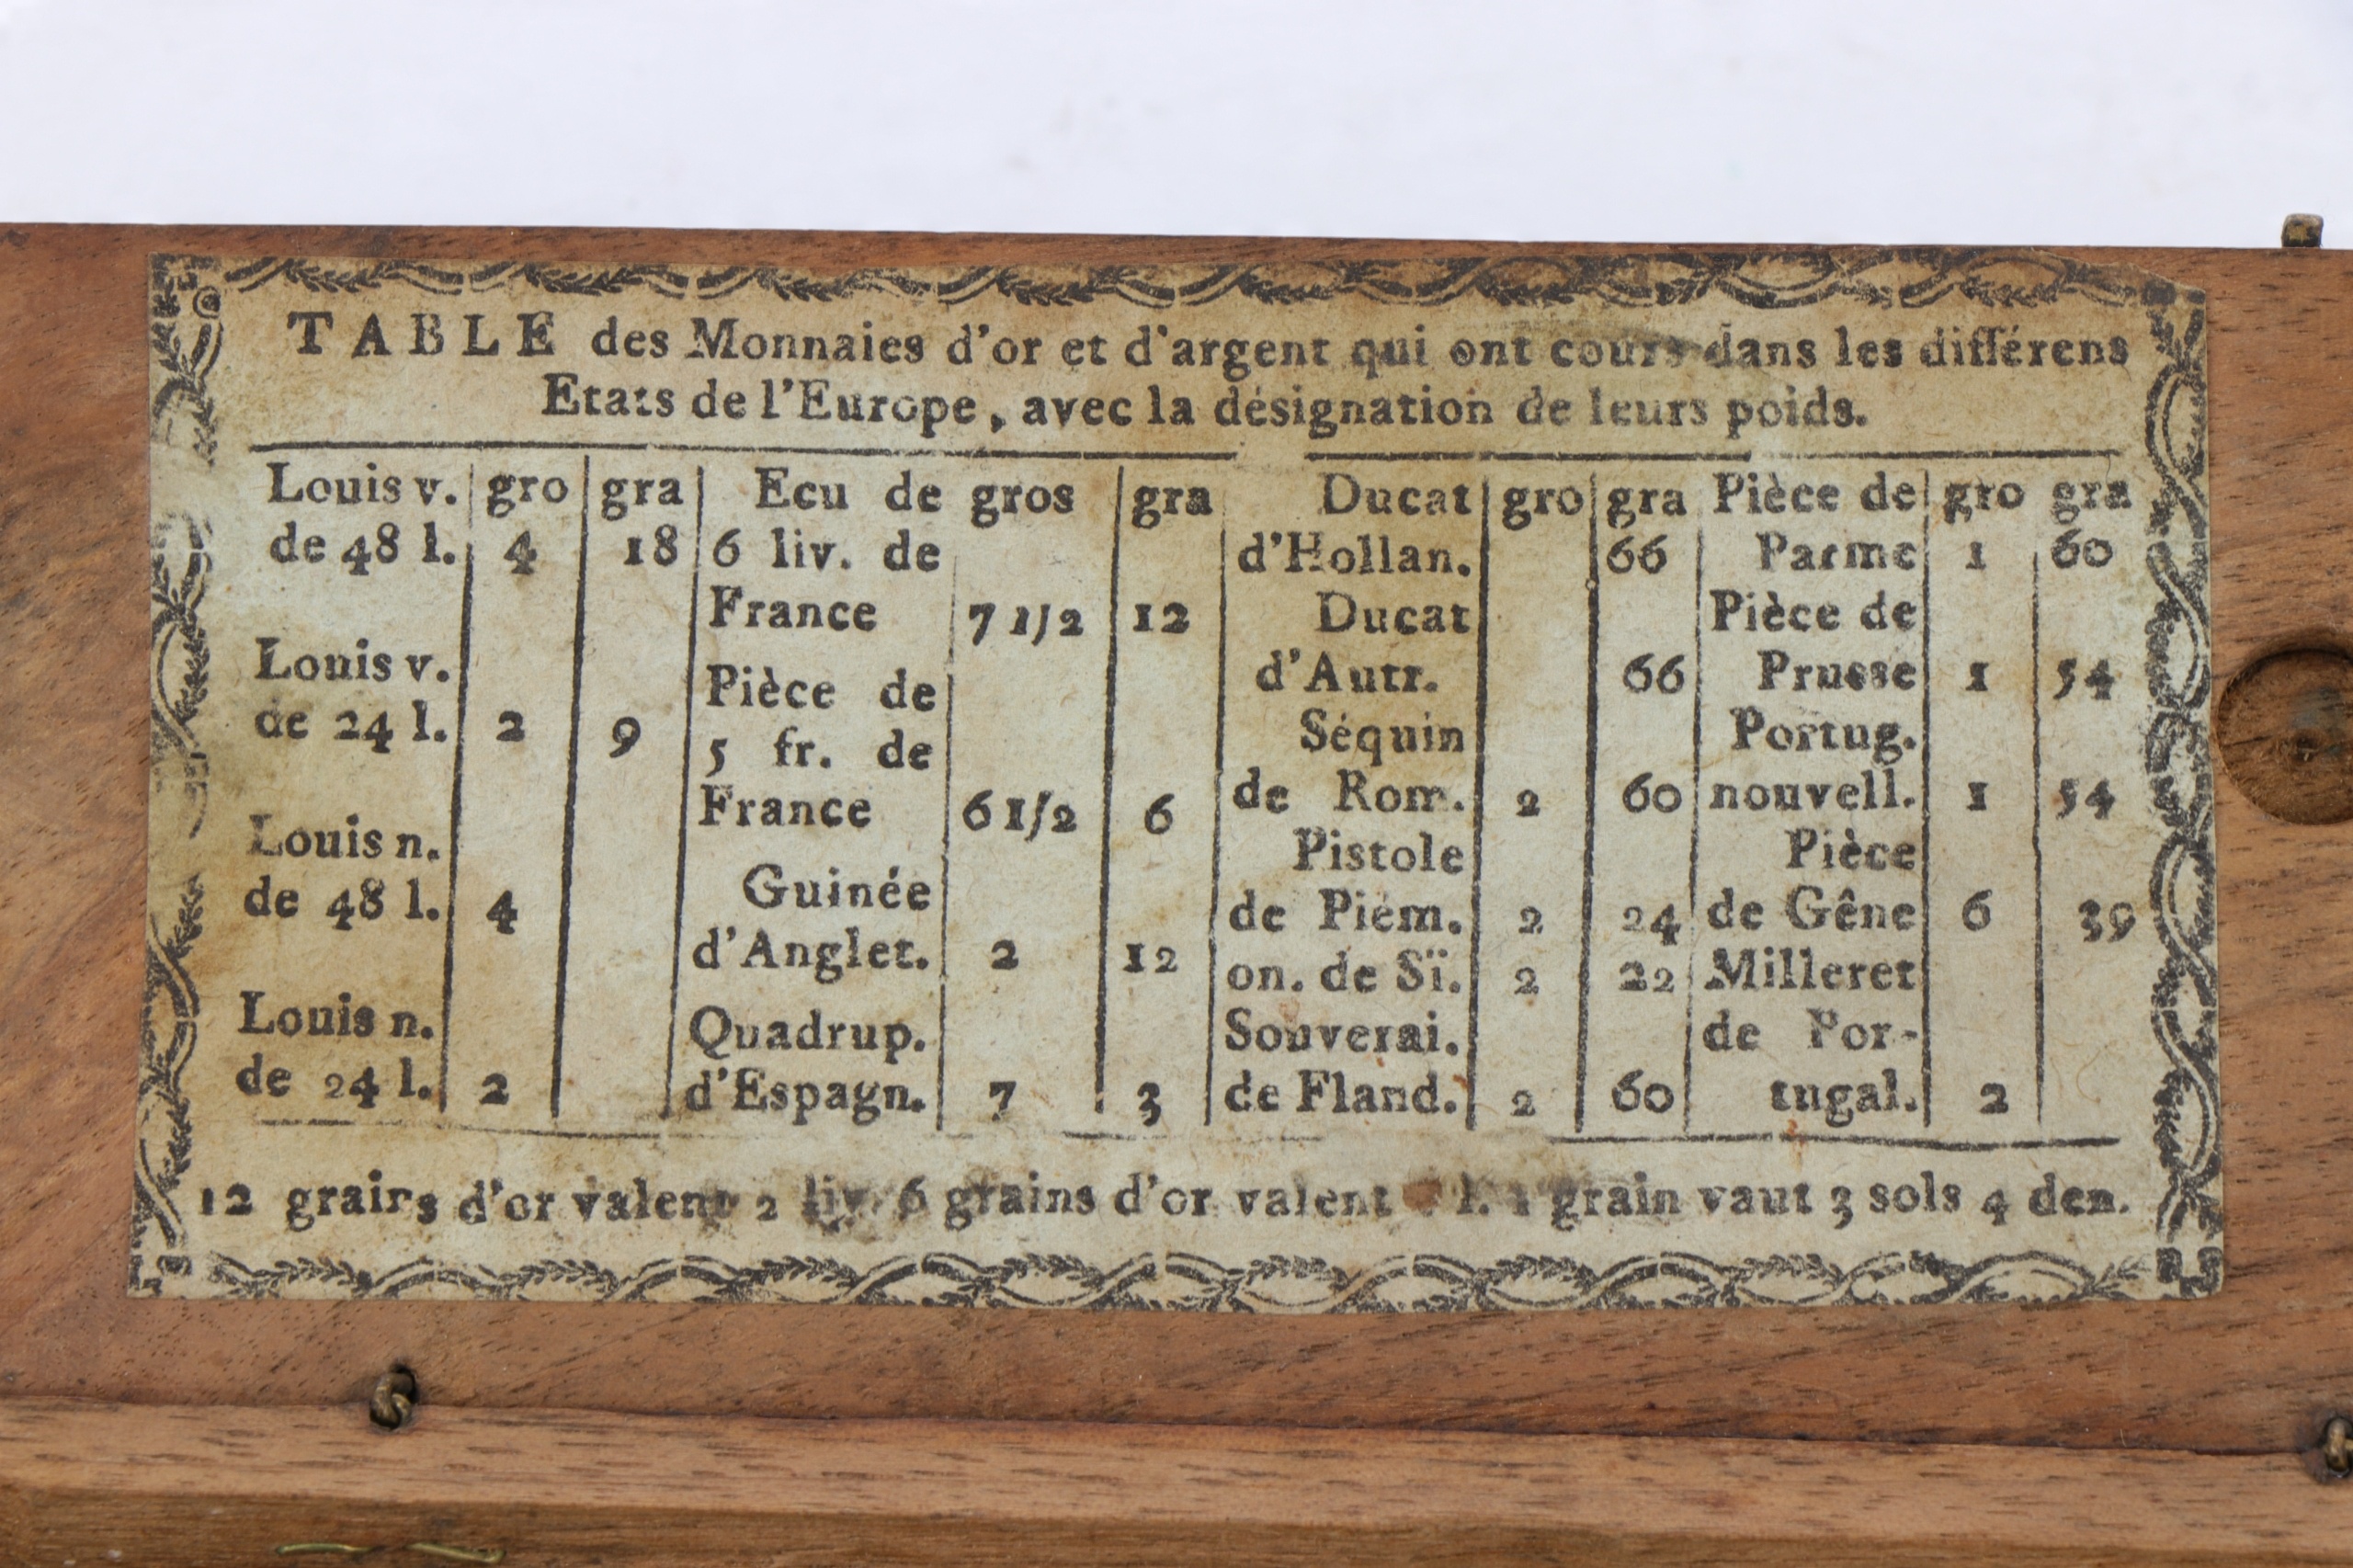 TABLE des Monnaies d'or et d'argent qui ont cours dans les différens
Etats de l'Europe, avec la désignation de leurs poids.
Louis v. gro gra
de 48 l. 4 18
Louis v.
de 24 l. 2 9
Louis n.
de 48 l. 4
Louis n.
de 24 l. 2
Ecu de gros gra
6 liv. de
France 7 1/2 12
Pièce de
5 fr. de
France 6 1/2 6
Guinée
d'Anglet. 2 12
Quadrup.
d'Espagn. 7 3
Ducat gro gra
d'Hollan. 66
Ducat
d'Autr. 66
Séquin
de Rom. 2 60
Pistole
de Piém. 2 24
on. de Sï. 2 22
Souverai.
de Fland. 2 60
Pièce de gro gra
Parme 1 60
Pièce de
Prusse 1 54
Portug.
nouvell. 1 54
Pièce
de Gêne 6 39
Milleret
de Por-
tugal. 2
12 grains d'or valent 2 liv. 6 grains d'or valent l. 1 grain vaut 3 sols 4 den.